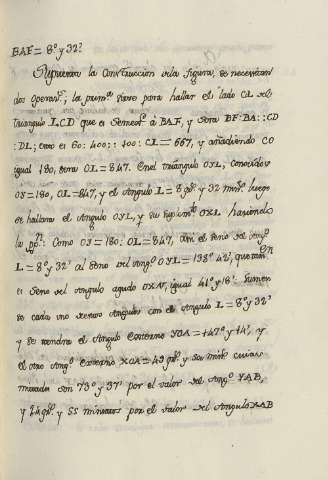 BAF = 8º y 32'
Supuesta la Construccion de la figura, se necesitan
dos operans; la primª sirve para hallar el lado CL del
triangulo LCD que es Semente á BAF, y sera BF·BA::CD
:DL; esto es 60: 400:: 100: CL = 667, y añadiendo CO
igual 180, sera OL=847. En el triangulo OYL, Conocidos
OY=180, OL=847, y el Angulo L=8 gds y 32 mins luego
se hallara el Angulo OYL, y su suplemto OXL haciendo
la ppn. Como OY=180: OL=847, asi el seno del angº
L=8º y 32' al seno del angº OYL=138º 42', que es en
el Seno del Angulo agudo OXY, igual 41º y 18'. Sumen
se cada uno de los Angulos con el Angulo L=8º y 32'
y se tendra el Angulo Externo YOA=147º y 14', y
el otro angº Externo XOA=49 gds y 50 mins cuias
mitades son 73º y 37' por el valor del angº YAB,
y 24 gds y 55 minutos por el valor del Angulo XAB